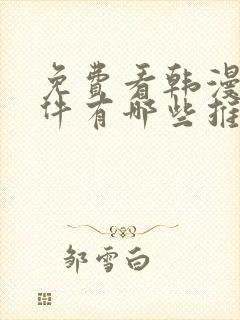 免费看韩漫
件有哪些推
邹雪白